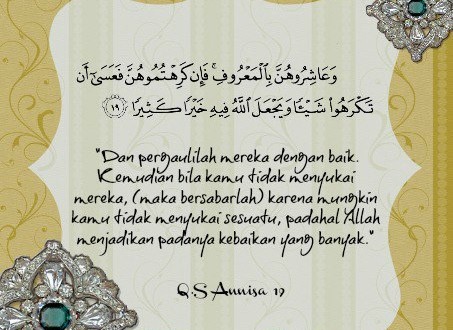 وَعَاشِرُوهُنَّ بِالْمَعْرُوفِ ۚ فَإِن كَرِهْتُمُوهُنَّ فَعَسَىٰٓ أَن
تَكْرَهُوا۟ شَيْـًٔا وَيَجْعَلَ اللَّهُ فِيهِ خَيْرًا كَثِيرًا ﴿١٩﴾
"Dan pergaulilah mereka dengan baik.
Kemudian bila kamu tidak menyukai
mereka, (maka bersabarlah) karena mungkin
kamu tidak menyukai sesuatu, padahal Allah
menjadikan padanya kebaikan yang banyak."
Q.S Annisa 19